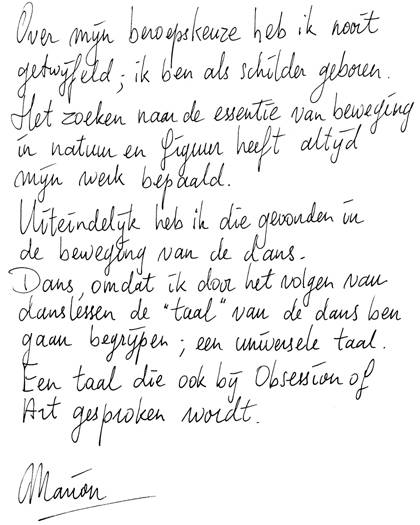 Over mijn beroepskeuze heb ik nooit
getwijfeld; ik ben als schilder geboren.
Het zoeken naar de essentie van beweging
in natuur en figuur heeft altijd
mijn werk bepaald.
Uiteindelijk heb ik die gevonden in
de beweging van de dans.
Dans, omdat ik door het volgen van
danslessen de "taal" van de dans ben
gaan begrijpen; een universele taal.
Een taal die ook bij Obsession of
Art gesproken wordt.
Marion